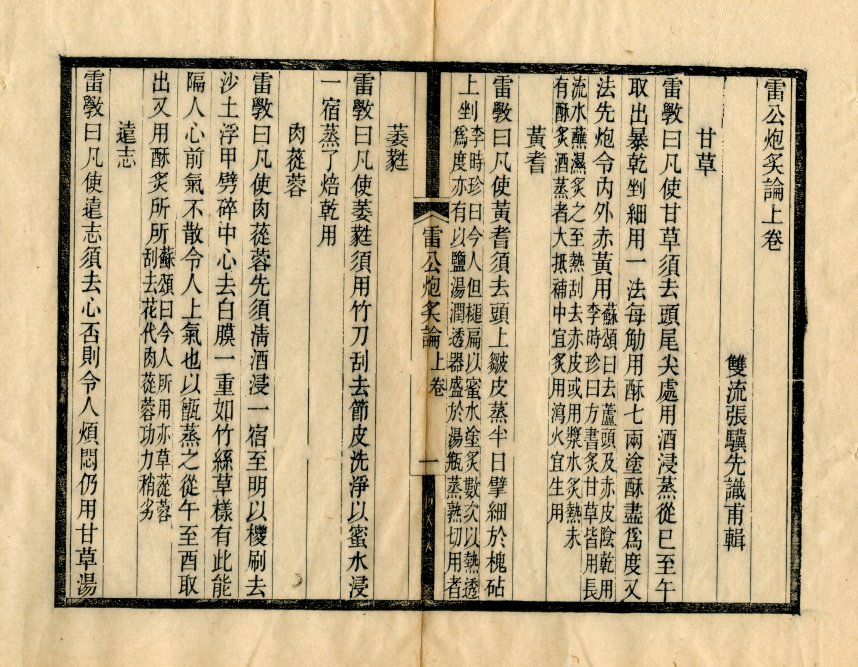 雷公炮炙論上卷
雙流張驥先識甫輯
甘草
雷斆曰凡使甘草須去頭尾尖處用酒浸蒸從巳至午
取出暴乾剉細用一法每觔用酥七兩塗酥盡爲度又
法先炮令內外赤黃用蘇頌曰去蘆頭及赤皮陰乾用
李時珍曰方書炙甘草皆用長
流水蘸濕炙之至熱刮去赤皮或用漿水炙熱未
有酥炙酒蒸者大抵補中宜炙用瀉火宜生用
黃耆
雷斆曰凡使黃耆須去頭上皺皮蒸半日擘細於槐砧
上剉李時珍曰今人但槌扁以蜜水塗炙數次以熱透
爲度亦有以鹽湯潤透器盛於湯瓶蒸熟切用者
雷公炮炙論 上卷 一
萎蕤
雷斆曰凡使萎蕤須用竹刀刮去節皮洗淨以蜜水浸
一宿蒸了焙乾用
肉蓯蓉
雷斆曰凡使肉蓯蓉先須清酒浸一宿至明以椶刷去
沙土浮甲劈碎中心去白膜一重如竹絲草樣有此能
隔人心前氣不散令人上氣也以甑蒸之從午至酉取
出又用酥炙所所蘇頌曰今人所用亦草蓯蓉
刮去花代肉蓯蓉功力稍劣
遠志
雷斆曰凡使遠志須去心否則令人煩悶仍用甘草湯